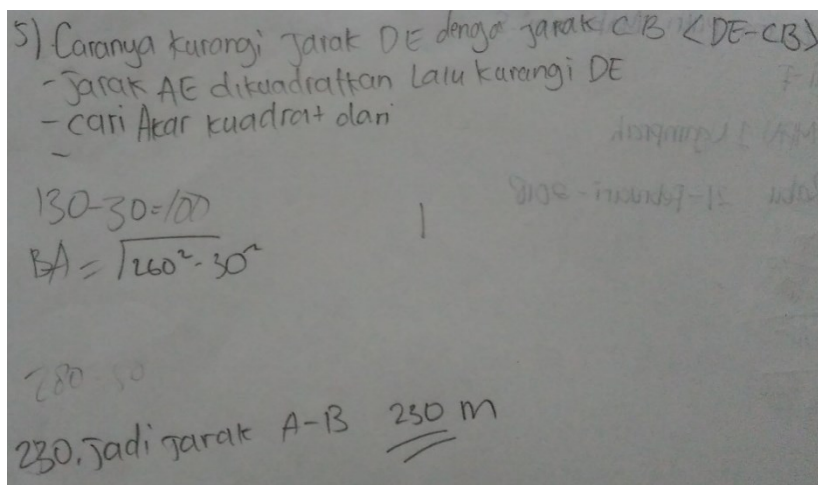 5) Caranya kurangi jarak DE denga jarak CB <DE-CB>
- Jarak AE dikuadratkan Lalu kurangi DE
- cari Akar kuadrat dari
-
130-30=100
BA = √260²-30²
280-30
230. Jadi jarak A-B 230 m